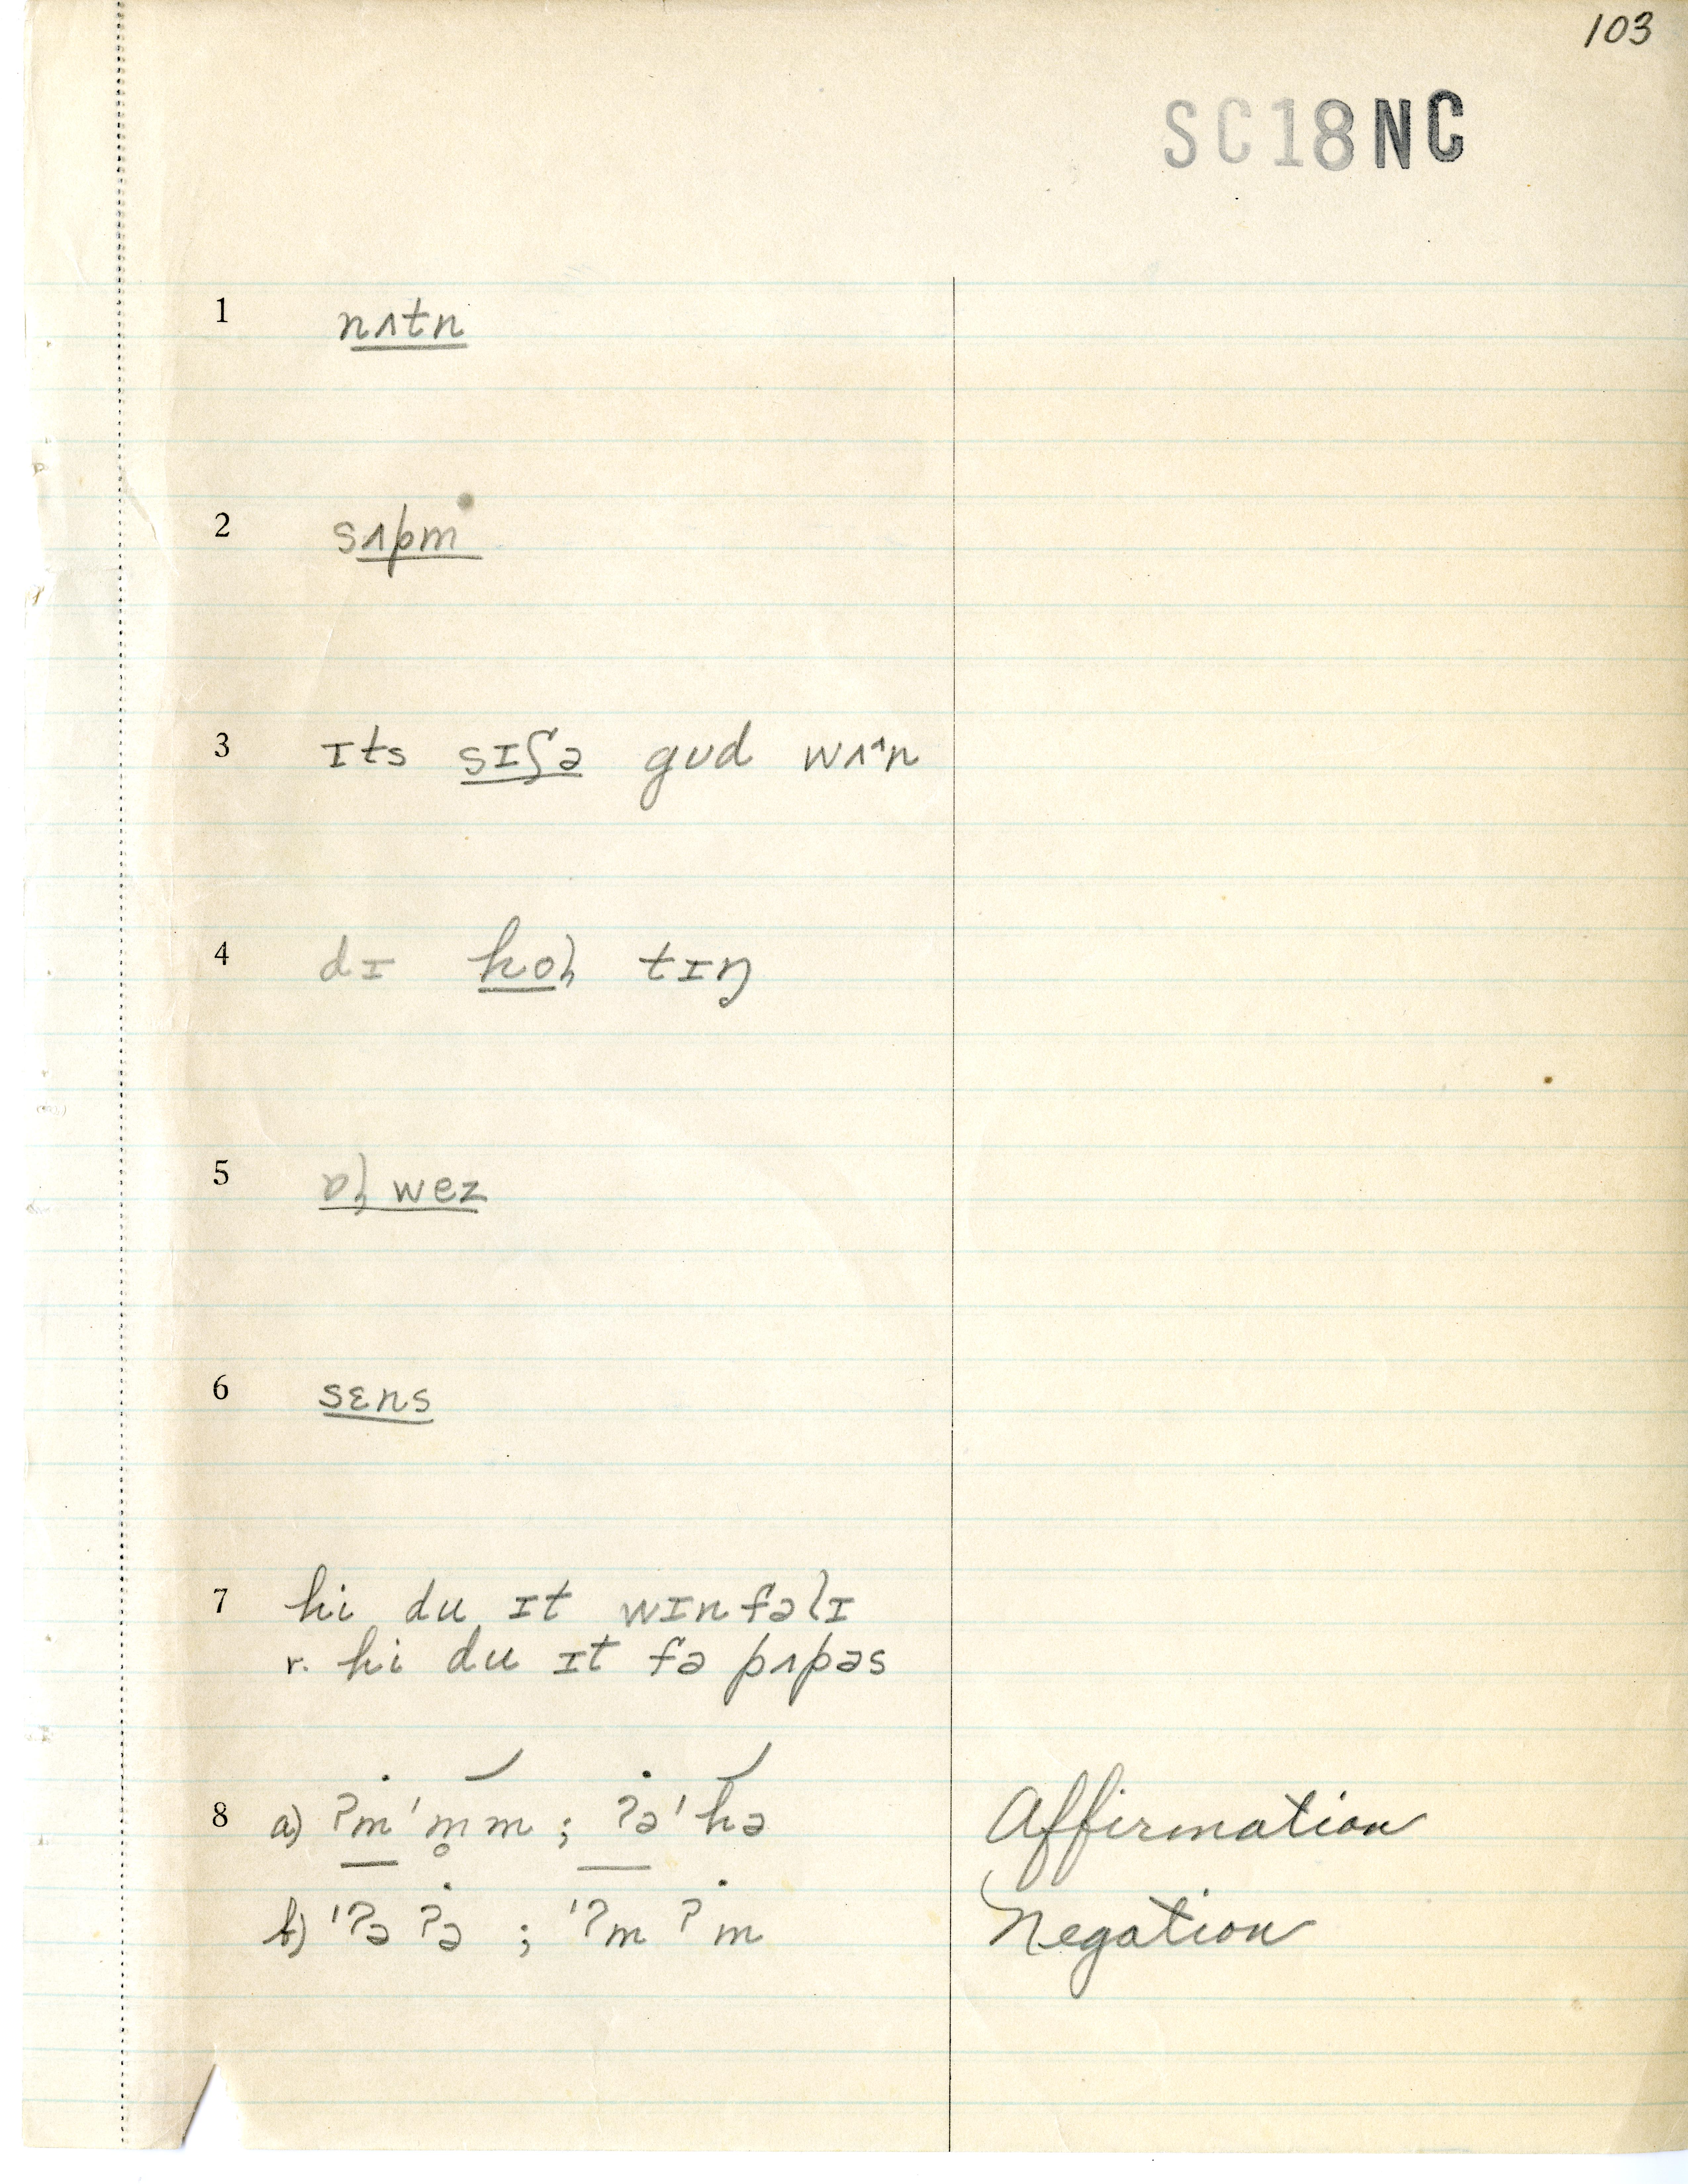 103
SC18NC
1 nʌtn
2 sʌpm
3 ɪts sɪʃə gʊd wʌˆn
4 dɪ hol tɪŋ
5 ɒl wez
6 sɛns
7 hi du ɪt wɪnfəlɪ
r. hi du ɪt fə pʌpəs
8 a) ʔṁˈm̥m ; ʔə̇ˈhə Affirmation
b) ˈʔə ʔə̇ ; ˈʔm ʔṁ Negation